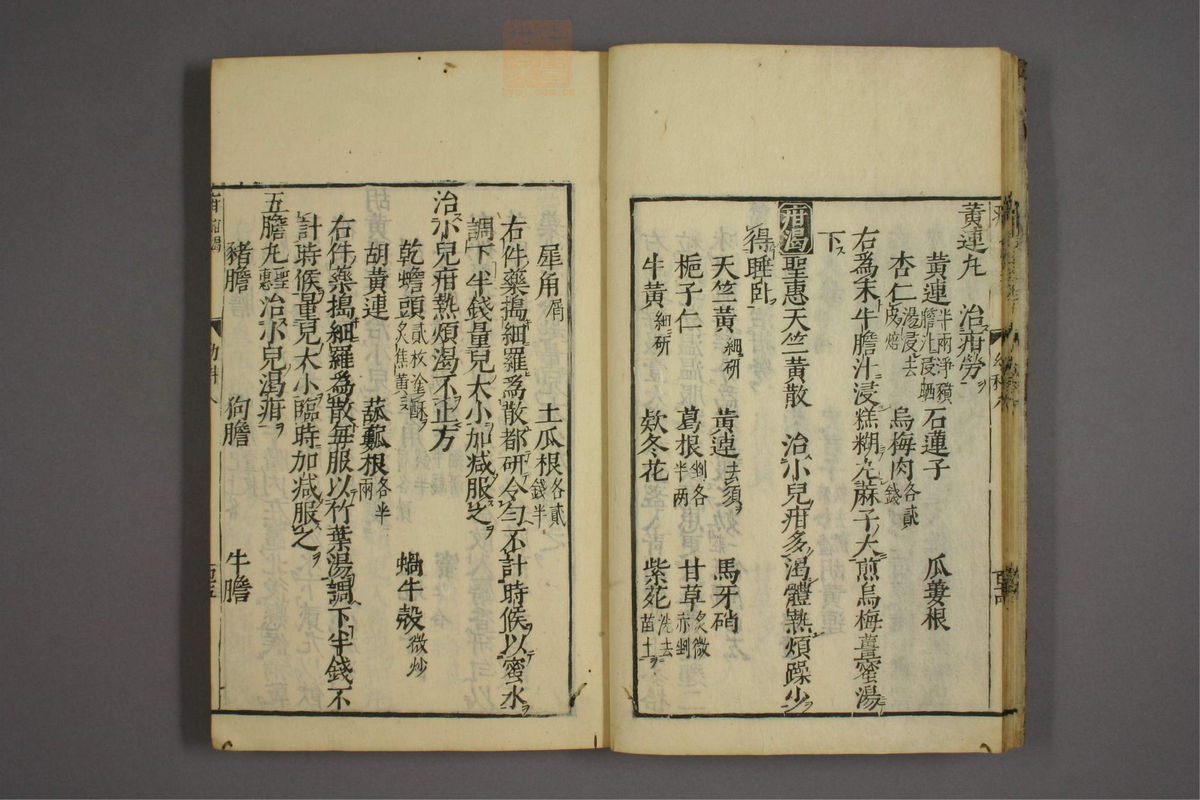 黃連丸　治疳勞
黃連半兩淨豬膽汁浸晒　石蓮子　瓜蔞根
杏仁湯浸去皮焙　烏梅肉各貳錢
右爲末牛膽汁浸糕糊丸麻子大煎烏梅薑蜜湯
下
疳渴聖惠天竺黃散　治小兒疳多渴體熱煩躁少
得睡臥
天竺黃細研　黃連去須　馬牙硝
梔子仁　葛根剉各半兩　甘草炙微赤剉
牛黃細研　欸冬花　紫菀洗去苗土
犀角屑　土瓜根各貳錢半
右件藥搗細羅爲散都研令勻不計時候以蜜水
調下半錢量兒大小加减服之
治小兒疳熱煩渴不止方
乾蟾頭貳枚塗酥炙焦黃　蝸牛殼微炒
胡黃連　苽蔞根各半兩
右件藥搗細羅爲散每服以竹葉湯調下半錢不
計時候量兒大小臨時加减服之
五膽丸聖惠治小兒渴疳
豬膽　狗膽　牛膽